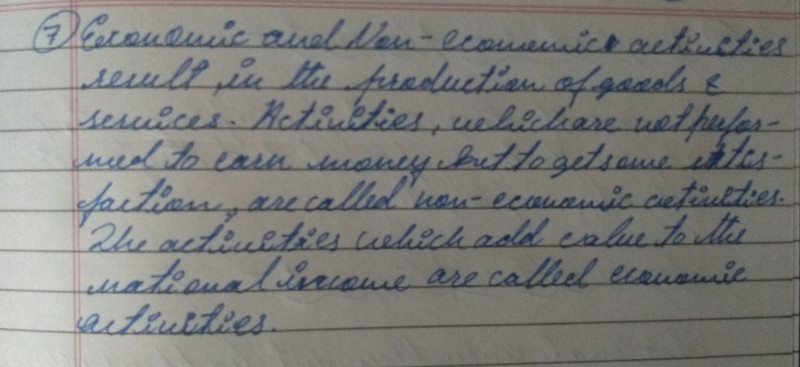 7 Economic and Non-economic activities
result, in the production of goods &
services. Activities, which are not perfor-
med to earn money but to get some satis-
faction, are called non-economic activities.
The activities which add value to the
national income are called economic
activities.